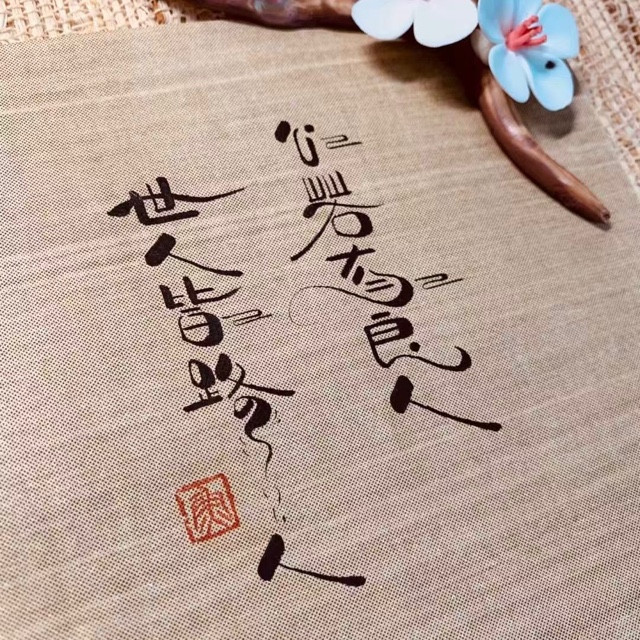 心若有良人
世人皆路人